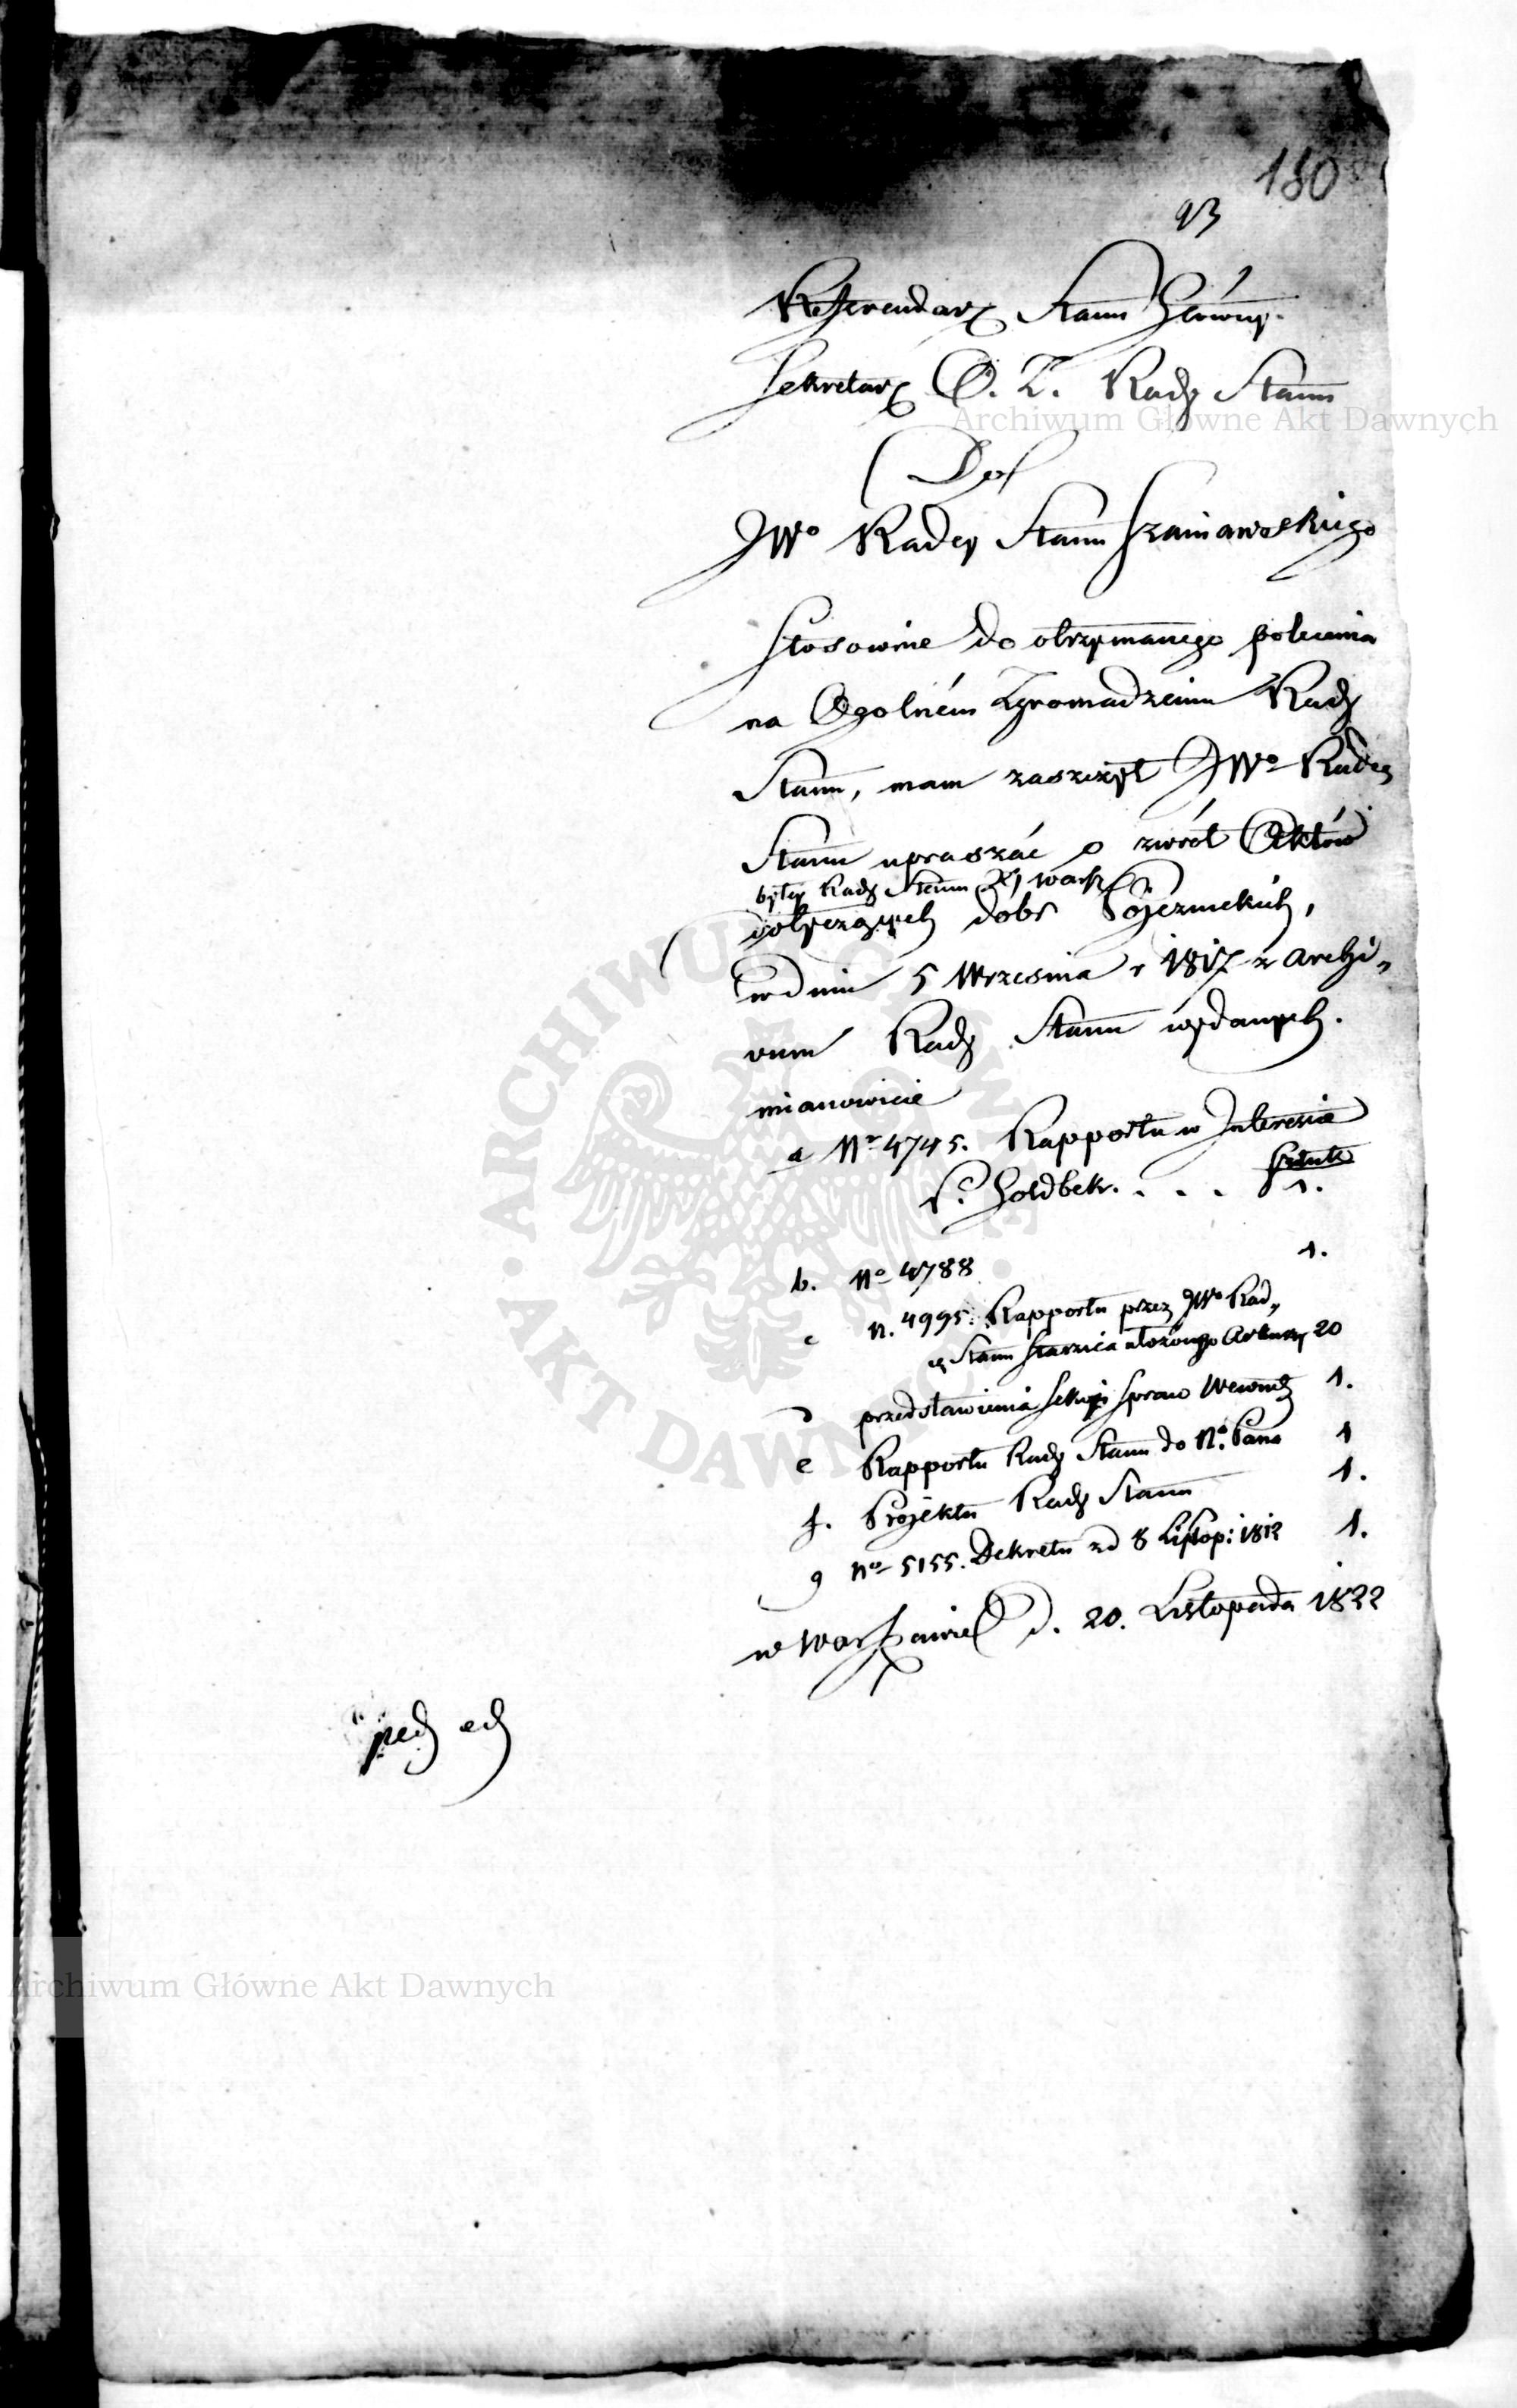 180
93
Referendarz Stanu Główny
Sekretarz O. Z. Rady Stanu
Do
JWo Radcy Stanu Szaniawskiego
Stosownie do otrzymanego polecenia
na Ogolném Zgromadzeniu Rady
Stanu, mam zaszczyt JWo Radcy
Stanu upraszać o zwrót Aktów
byłey Rady Stanu Xię Warsz
dotyczących dobr
w dniu 5 Września r 1817 z Archi„
wum Rady Stanu wydanych.
mianowicie
a No 4745. Rapportu w Interesie
sztuk
P. Holdbek. . . . 1.
b. No 4788 1.
c N. 4995. Rapportu przez JWo Rad„
cę Stanu Staszica ułożonego Arkuszy 20
d przedstawienia Sekcyi Spraw Wewnętz 1.
e Rapportu Rady Stanu do N. Pana 1
f. Projektu Rady Stanu 1.
g No 5155. Dekretu zd 8 Listop: 1812 1.
w Warszawie d. 20. Listopada 1822
Archiwum Główne Akt Dawnych
ARCHIWUM GŁÓWNE AKT DAWNYCH
Archiwum Główne Akt Dawnych